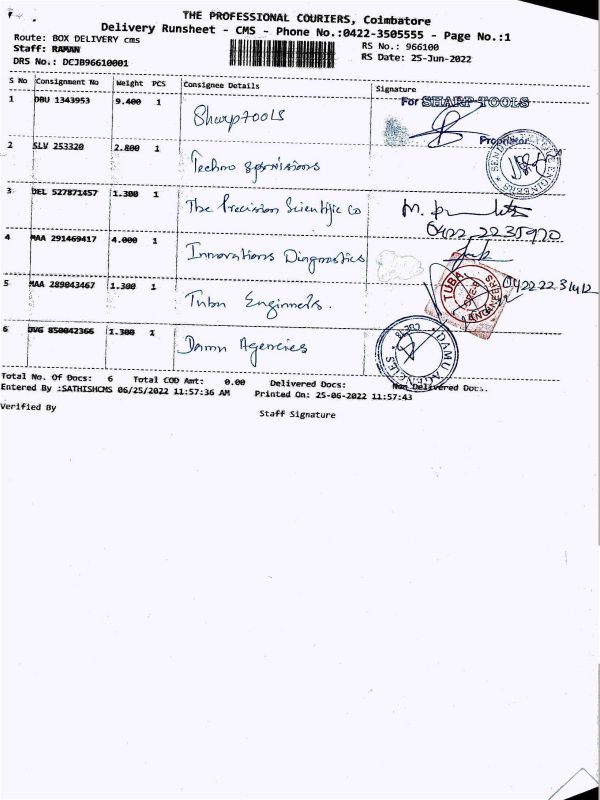 THE PROFESSIONAL COURIERS, Coimbatore
Delivery Runsheet - CMS - Phone No.:0422-3505555 - Page No.:1
Route: BOX DELIVERY cms
RS No.: 966100
Staff: RAMAN
RS Date: 25-Jun-2022
DRS No.: DCJB96610001
S No Consignment No Weight PCS Consignee Details Signature
1 DBU 1343953 9.400 1 Sharptools
For SHARP TOOLS
Proprietor
2 SLV 253320 2.800 1 Techno
3 DEL 527871457 1.300 1 The Precision Scientific Co
0422 2235920
4 MAA 291469417 4.000 1 Innovations Diagnostics
5 MAA 289043467 1.300 1 Tuba Engineers.
TUBA
0422 22
6 DVG 850042366 1.300 1 Damu Agencies
DAMU AGENCIES
CBE-18
Total No. Of Docs: 6 Total COD Amt: 0.00 Delivered Docs: Non Delivered Docs.
Entered By :SATHISHCMS 06/25/2022 11:57:36 AM Printed On: 25-06-2022 11:57:43
Verified By
Staff Signature